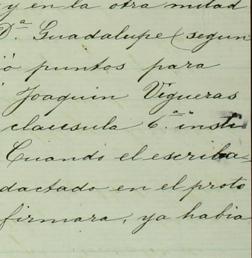 y en la otra mitad
D.ª Guadalupe (segun
ó puntos para
Joaquin Vigueras
clausula 6.ª insti
Cuando el escriba-
dactado en el proto
firmara, ya habia